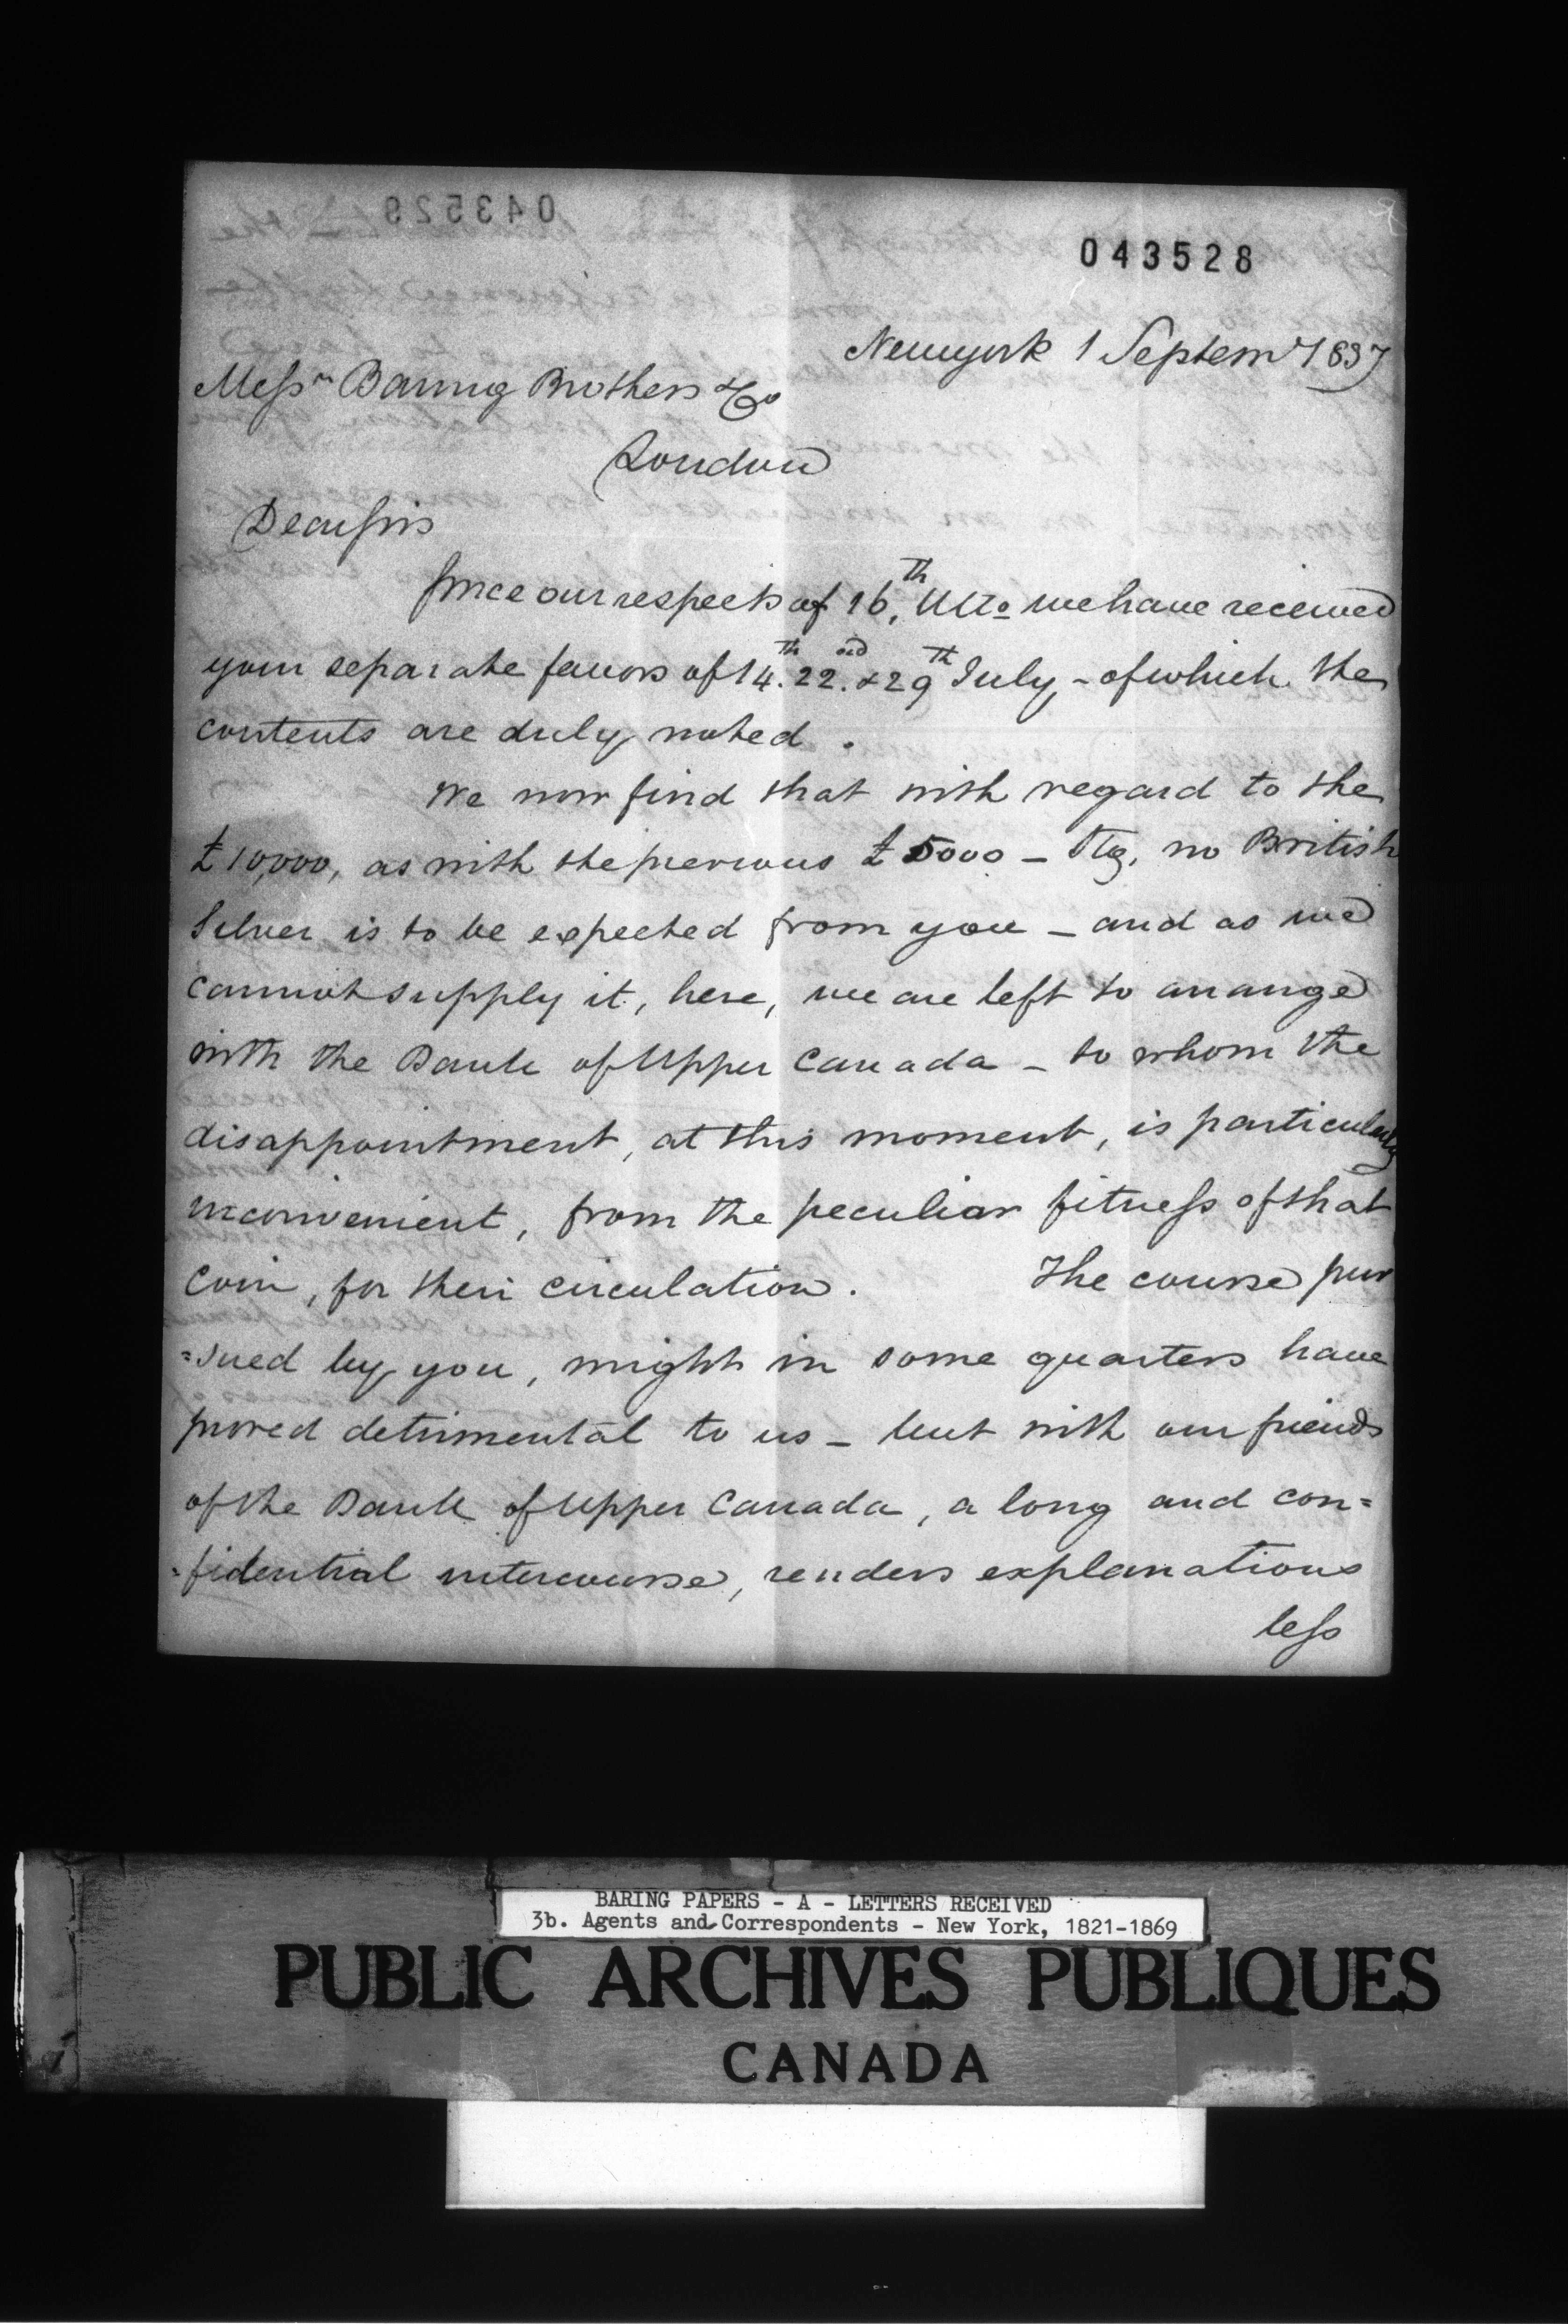 043529
043528
Newyork 1 Septem^r 1837
Mess^rs Baring Brothers & Co
London
Dear Sirs
Since our respects of 16^th, Ulto we have received
your separate favors of 14^th. 22^nd. & 29^th July – of which the
contents are duly noted.
We now find that with regard to the
£10,000, as with the previous £5000 – Stg, no British
Silver is to be expected from you – and as we
cannot supply it, here, we are left to arrange
with the Bank of Upper Canada – to whom the
disappointment, at this moment, is particularly
inconvenient, from the peculiar fitness of that
Coin, for their circulation. The course pur
=sued by you, might in some quarters have
proved detrimental to us – but with our friends
of the Bank of Upper Canada, a long and con=
=fidential intercourse, renders explanations
less
BARING PAPERS - A - LETTERS RECEIVED
3b. Agents and Correspondents - New York, 1821-1869
PUBLIC ARCHIVES PUBLIQUES
CANADA